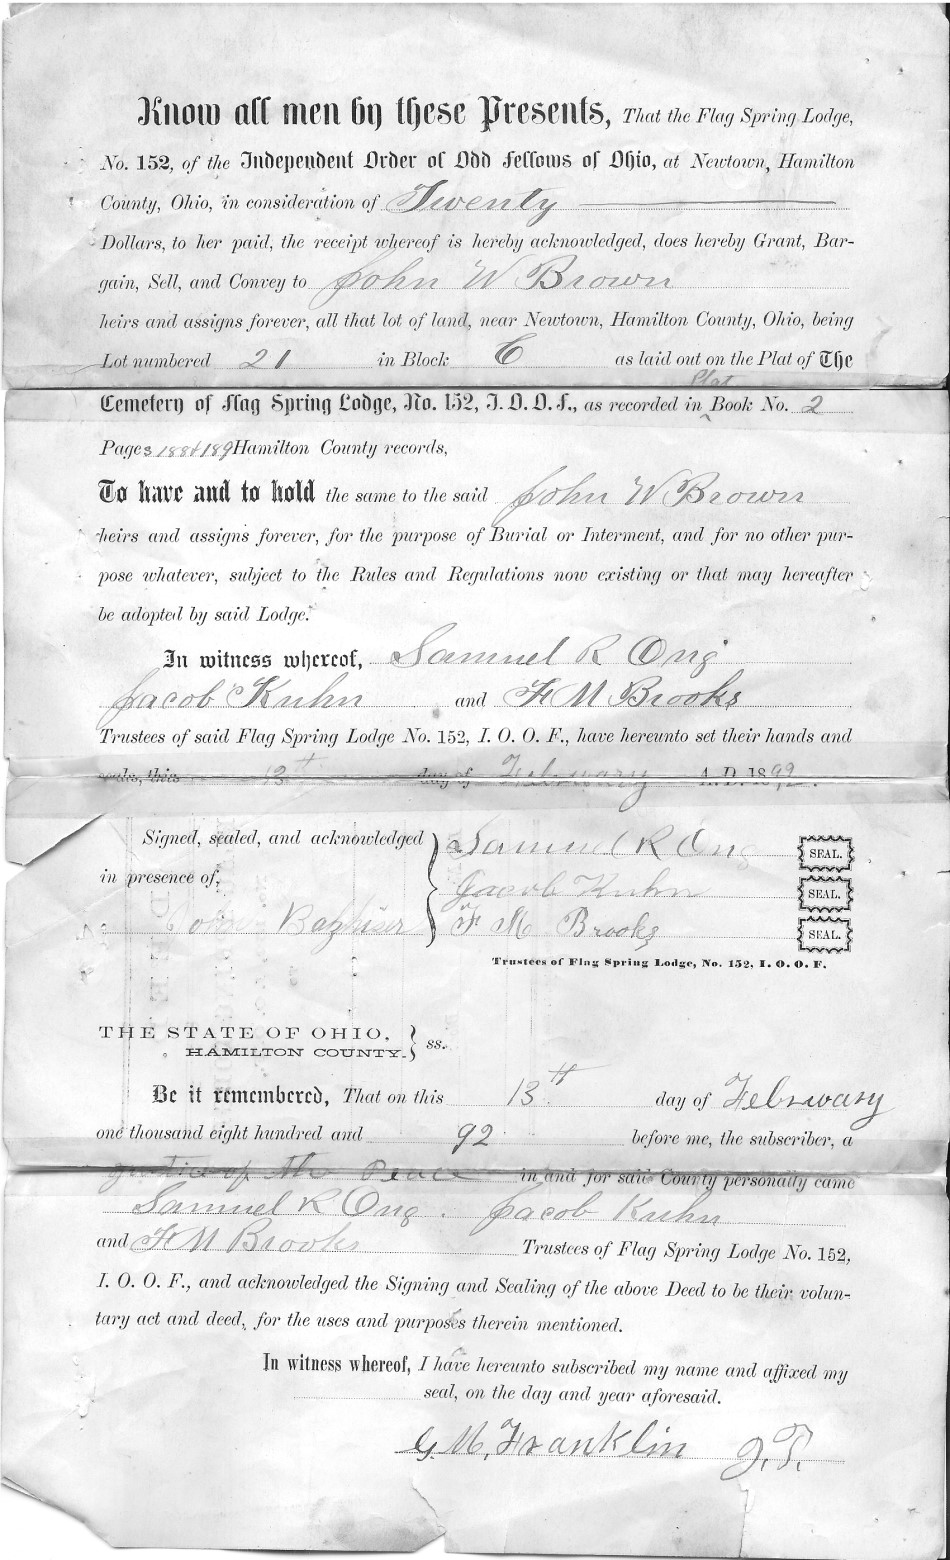 Know all men by these Presents, That the Flag Spring Lodge,
No. 152, of the Independent Order of Odd Fellows of Ohio, at Newtown, Hamilton
County, Ohio, in consideration of Twenty
Dollars, to her paid, the receipt whereof is hereby acknowledged, does hereby Grant, Bar-
gain, Sell, and Convey to John W Brown
heirs and assigns forever, all that lot of land, near Newtown, Hamilton County, Ohio, being
Lot numbered 21 in Block C as laid out on the Plat of The
Plat
Cemetery of Flag Spring Lodge, No. 152, I. O. O. F., as recorded in ^ Book No. 2
Pages 188 & 189 Hamilton County records,
To have and to hold the same to the said John W Brown
heirs and assigns forever, for the purpose of Burial or Interment, and for no other pur-
pose whatever, subject to the Rules and Regulations now existing or that may hereafter
be adopted by said Lodge.
In witness whereof, Samuel R Ong
Jacob Kuhn and F M Brooks
Trustees of said Flag Spring Lodge No. 152, I. O. O. F., have hereunto set their hands and
seals, this 13th day of February A. D. 1892.
Signed, sealed, and acknowledged
in presence of,
Samuel R Ong SEAL.
Jacob Kuhn SEAL.
F M Brooks SEAL.
Trustees of Flag Spring Lodge, No. 152, I. O. O. F.
THE STATE OF OHIO,
HAMILTON COUNTY. } ss.
Be it remembered, That on this 13th day of February
one thousand eight hundred and 92 before me, the subscriber, a
Justice of the Peace in and for said County personally came
Samuel R Ong. Jacob Kuhn
and F M Brooks Trustees of Flag Spring Lodge No. 152,
I. O. O. F., and acknowledged the Signing and Sealing of the above Deed to be their volun-
tary act and deed, for the uses and purposes therein mentioned.
In witness whereof, I have hereunto subscribed my name and affixed my
seal, on the day and year aforesaid.
G. M. Franklin J. P.